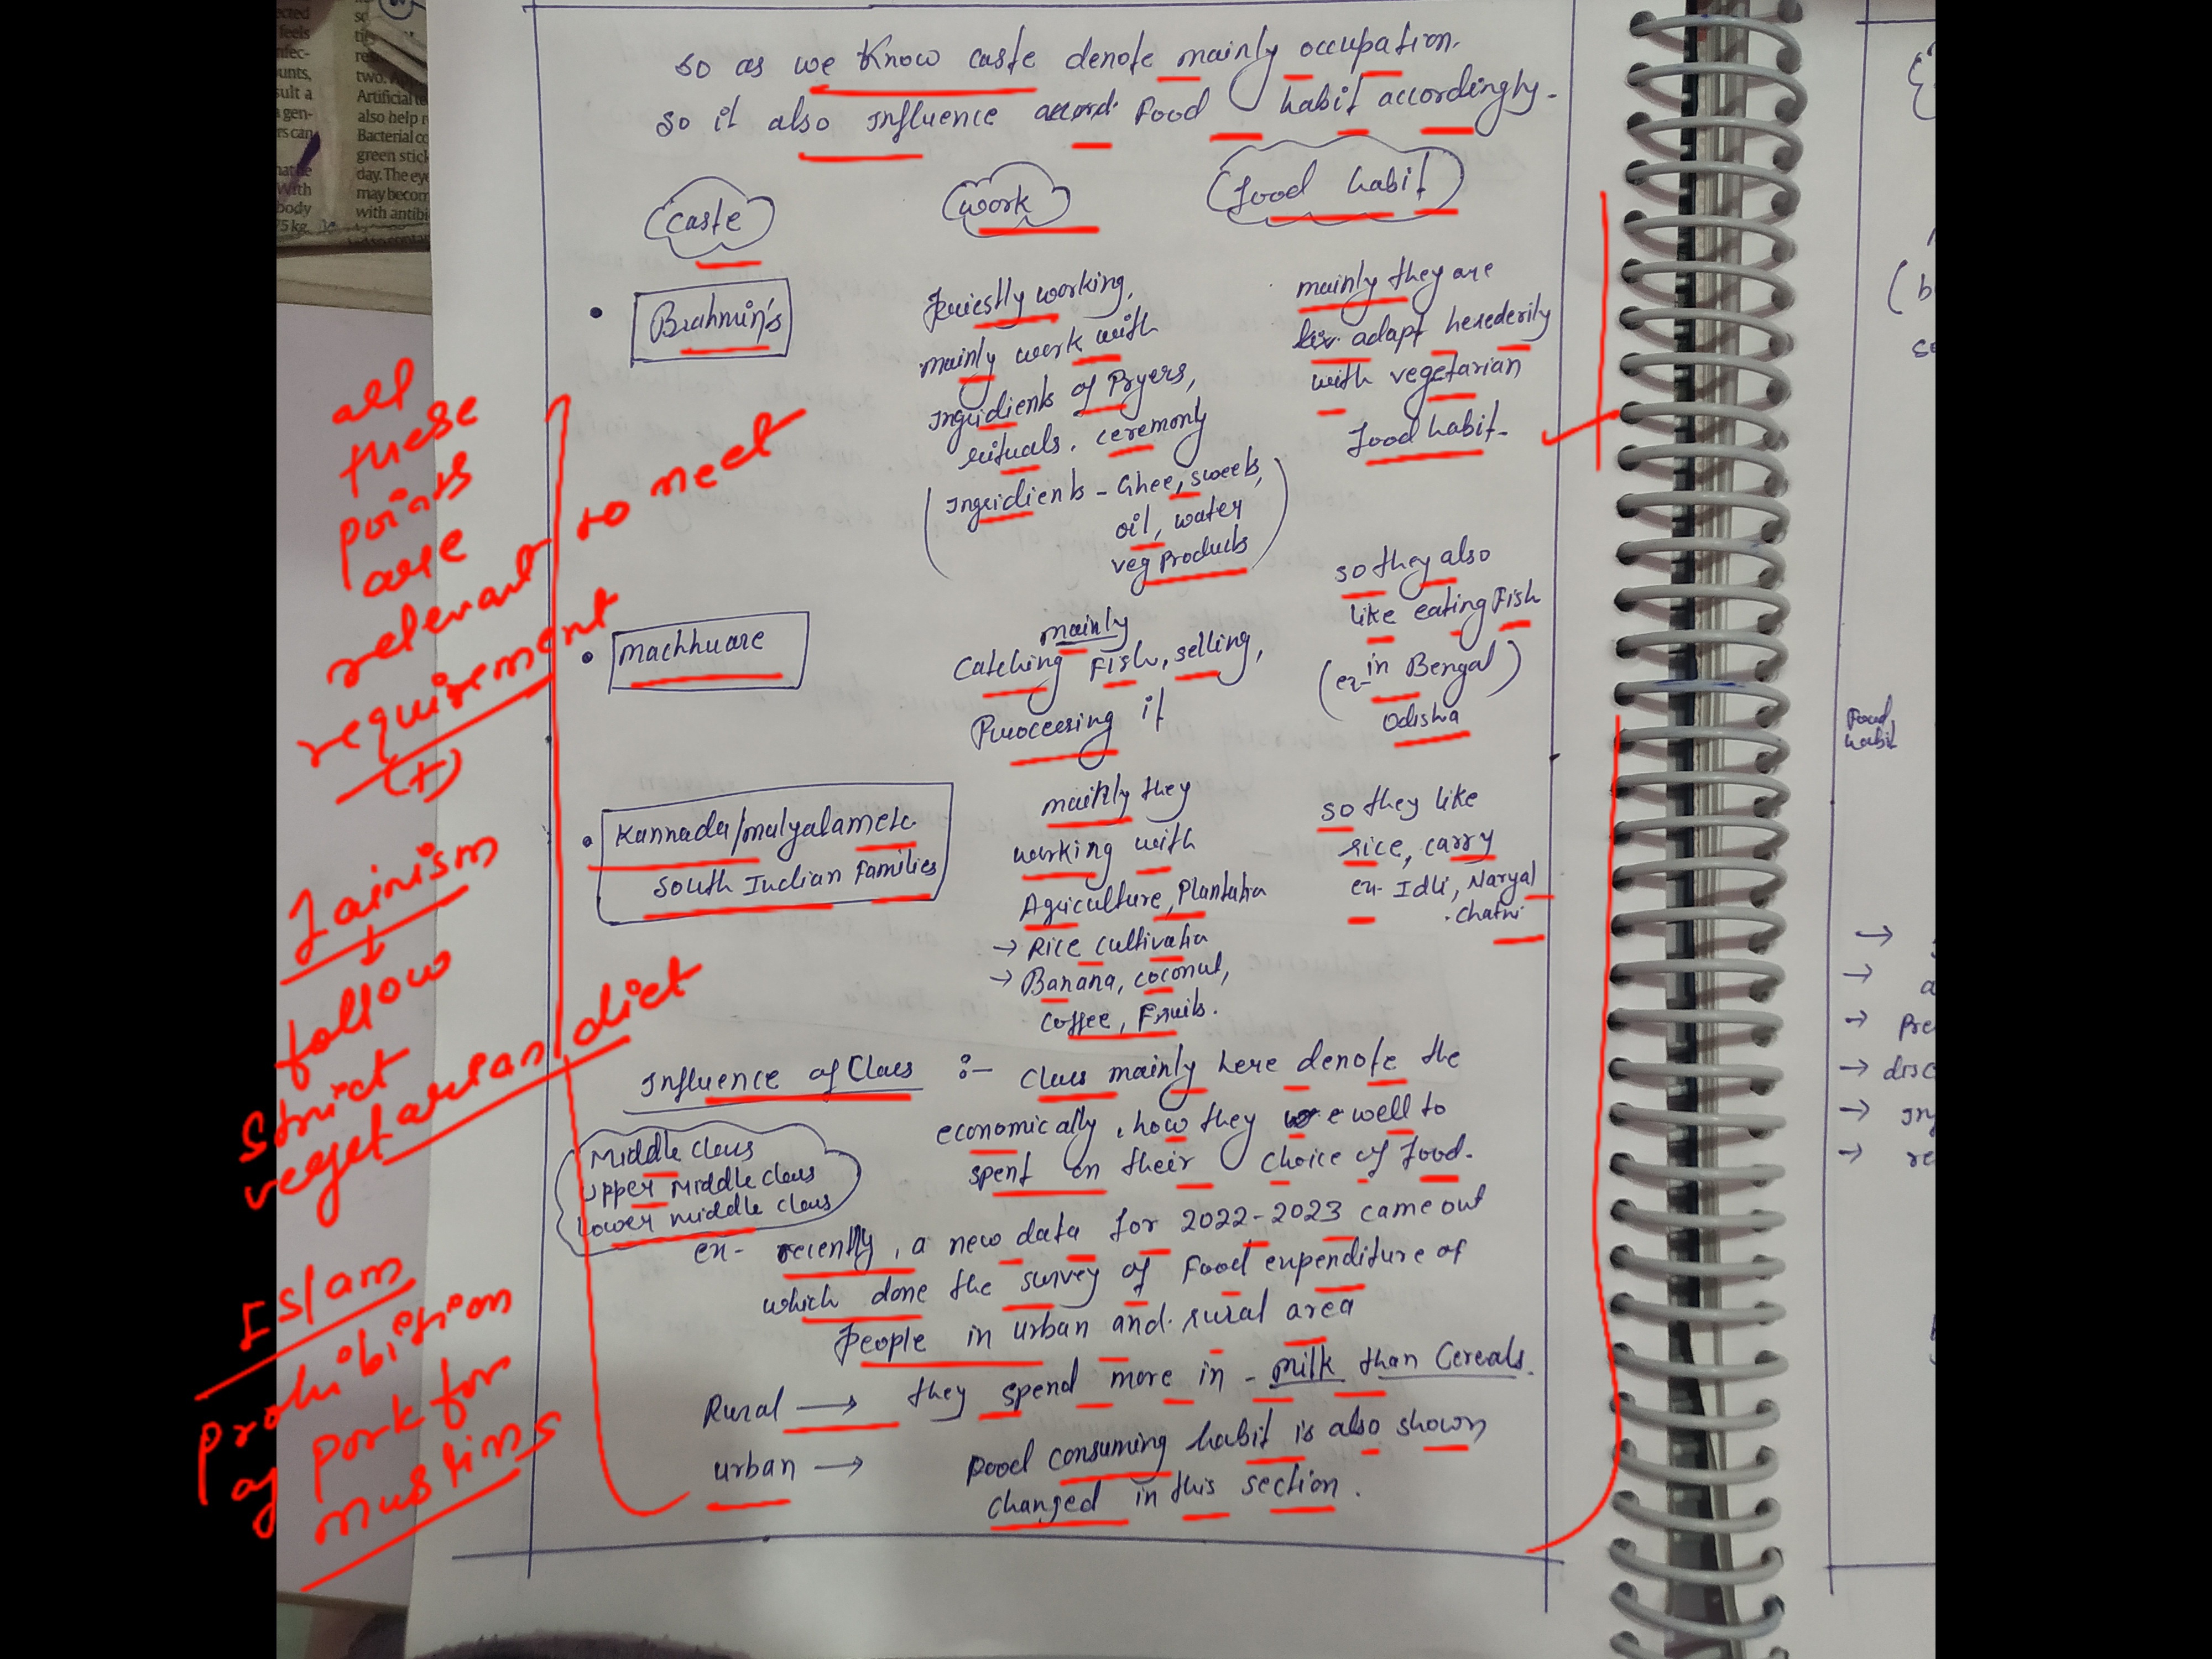 so as we know caste denote mainly occupation.
so it also influence food habit accordingly.
caste
work
food habit
Brahmin's
Priestly working,
mainly work with
Ingridients of Pryers,
rituals, ceremony
(Ingridients - Ghee, sweets,
oil, water
veg Products)
mainly they are
adapt herederily
with vegetarian
food habit.
machhuare
mainly
Catching Fish, selling,
Proccersing it
so they also
like eating Fish
(ex- in Bengal)
Odisha
Kannada/malyalam etc
south Indian families
mainly they
working with
Agriculture, Plantation
→ Rice cultivation
→ Banana, coconut,
coffee, Fruits.
so they like
rice, carry
ex- Idli, Naryal
chatni
Influence of Class :- Class mainly here denote the
economically, how they we well to
spent on their choice of food.
Middle class
upper middle class
Lower middle class
ex- recently, a new data for 2022-2023 came out
which done the survey of Food expenditure of
People in urban and rural area
Rural → they spend more in - milk than Cereals.
urban → Food consuming habit is also shown
changed in this section.
all
these
points
are
relevant to meet
requirement
(+)
Jainism
↓
follow
strict
vegetarian diet
Islam
prohibition
of pork for
muslims
ected
feels
nfec-
ounts,
sult a
gen-
rs can
With
body
75 kg.
two.
Artificial
also help
Bacterial
green stick
day. The eye
may becom
with antibi
Food
habit
→
→ a
→ Pre
→ disc
→ In
→ re